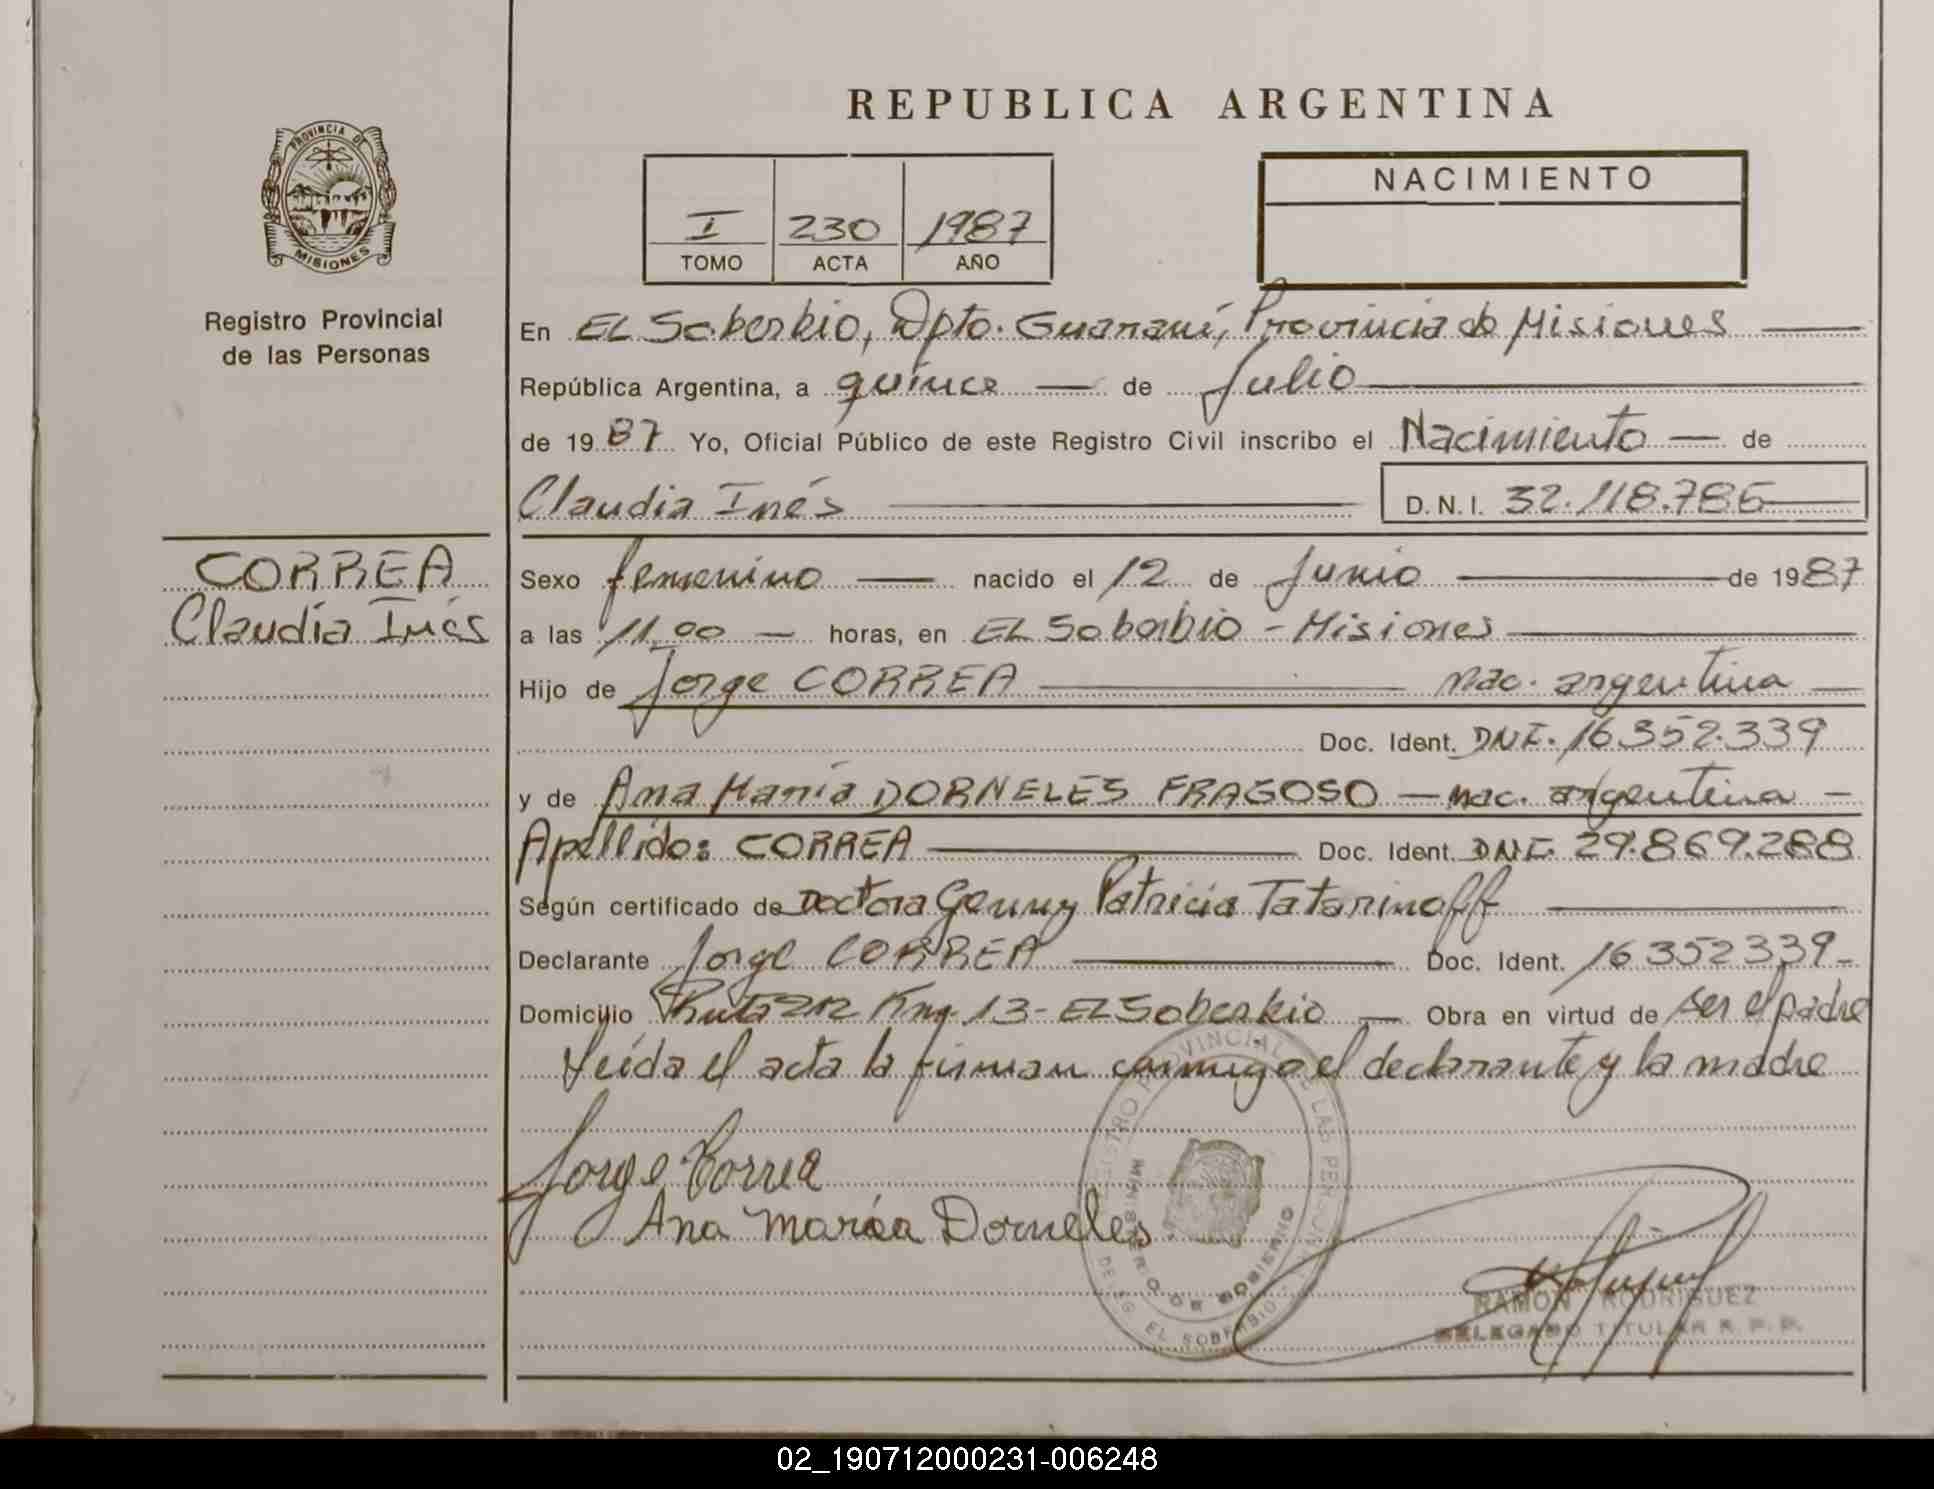 REPUBLICA ARGENTINA
PROVINCIA DE
MISIONES
Registro Provincial
de las Personas
I 230 1987
TOMO ACTA AÑO
NACIMIENTO
En EL Soberbio, Dpto. Guaraní, Provincia de Misiones
República Argentina, a quince de Julio
de 1987 Yo, Oficial Público de este Registro Civil inscribo el Nacimiento de
Claudia Inés D.N.I. 32.118.786
CORREA
Claudia Inés
Sexo femenino nacido el 12 de Junio de 1987
a las 11,00 horas, en EL Soberbio - Misiones
Hijo de Jorge CORREA nac. argentina
Doc. Ident. DNI. 16.352.339
y de Ana María DORNELES FRAGOSO - nac. argentina -
Apellido: CORREA Doc. Ident. DNI. 29.869.288
Según certificado de Doctora Genny Patricia Tatarinoff
Declarante Jorge CORREA Doc. Ident. 16352339-
Domicilio Ruta 212 Km. 13 - EL Soberbio Obra en virtud de ser el padre
Leída el acta la firman conmigo el declarante y la madre
Jorge Correa
Ana María Dorneles
REGISTRO PROVINCIAL DE LAS PERSONAS
MINISTERIO DE GOBIERNO
DELEG. EL SOBERBIO
RAMON RODRIGUEZ
DELEGADO TITULAR R. P. P.
02_190712000231-006248